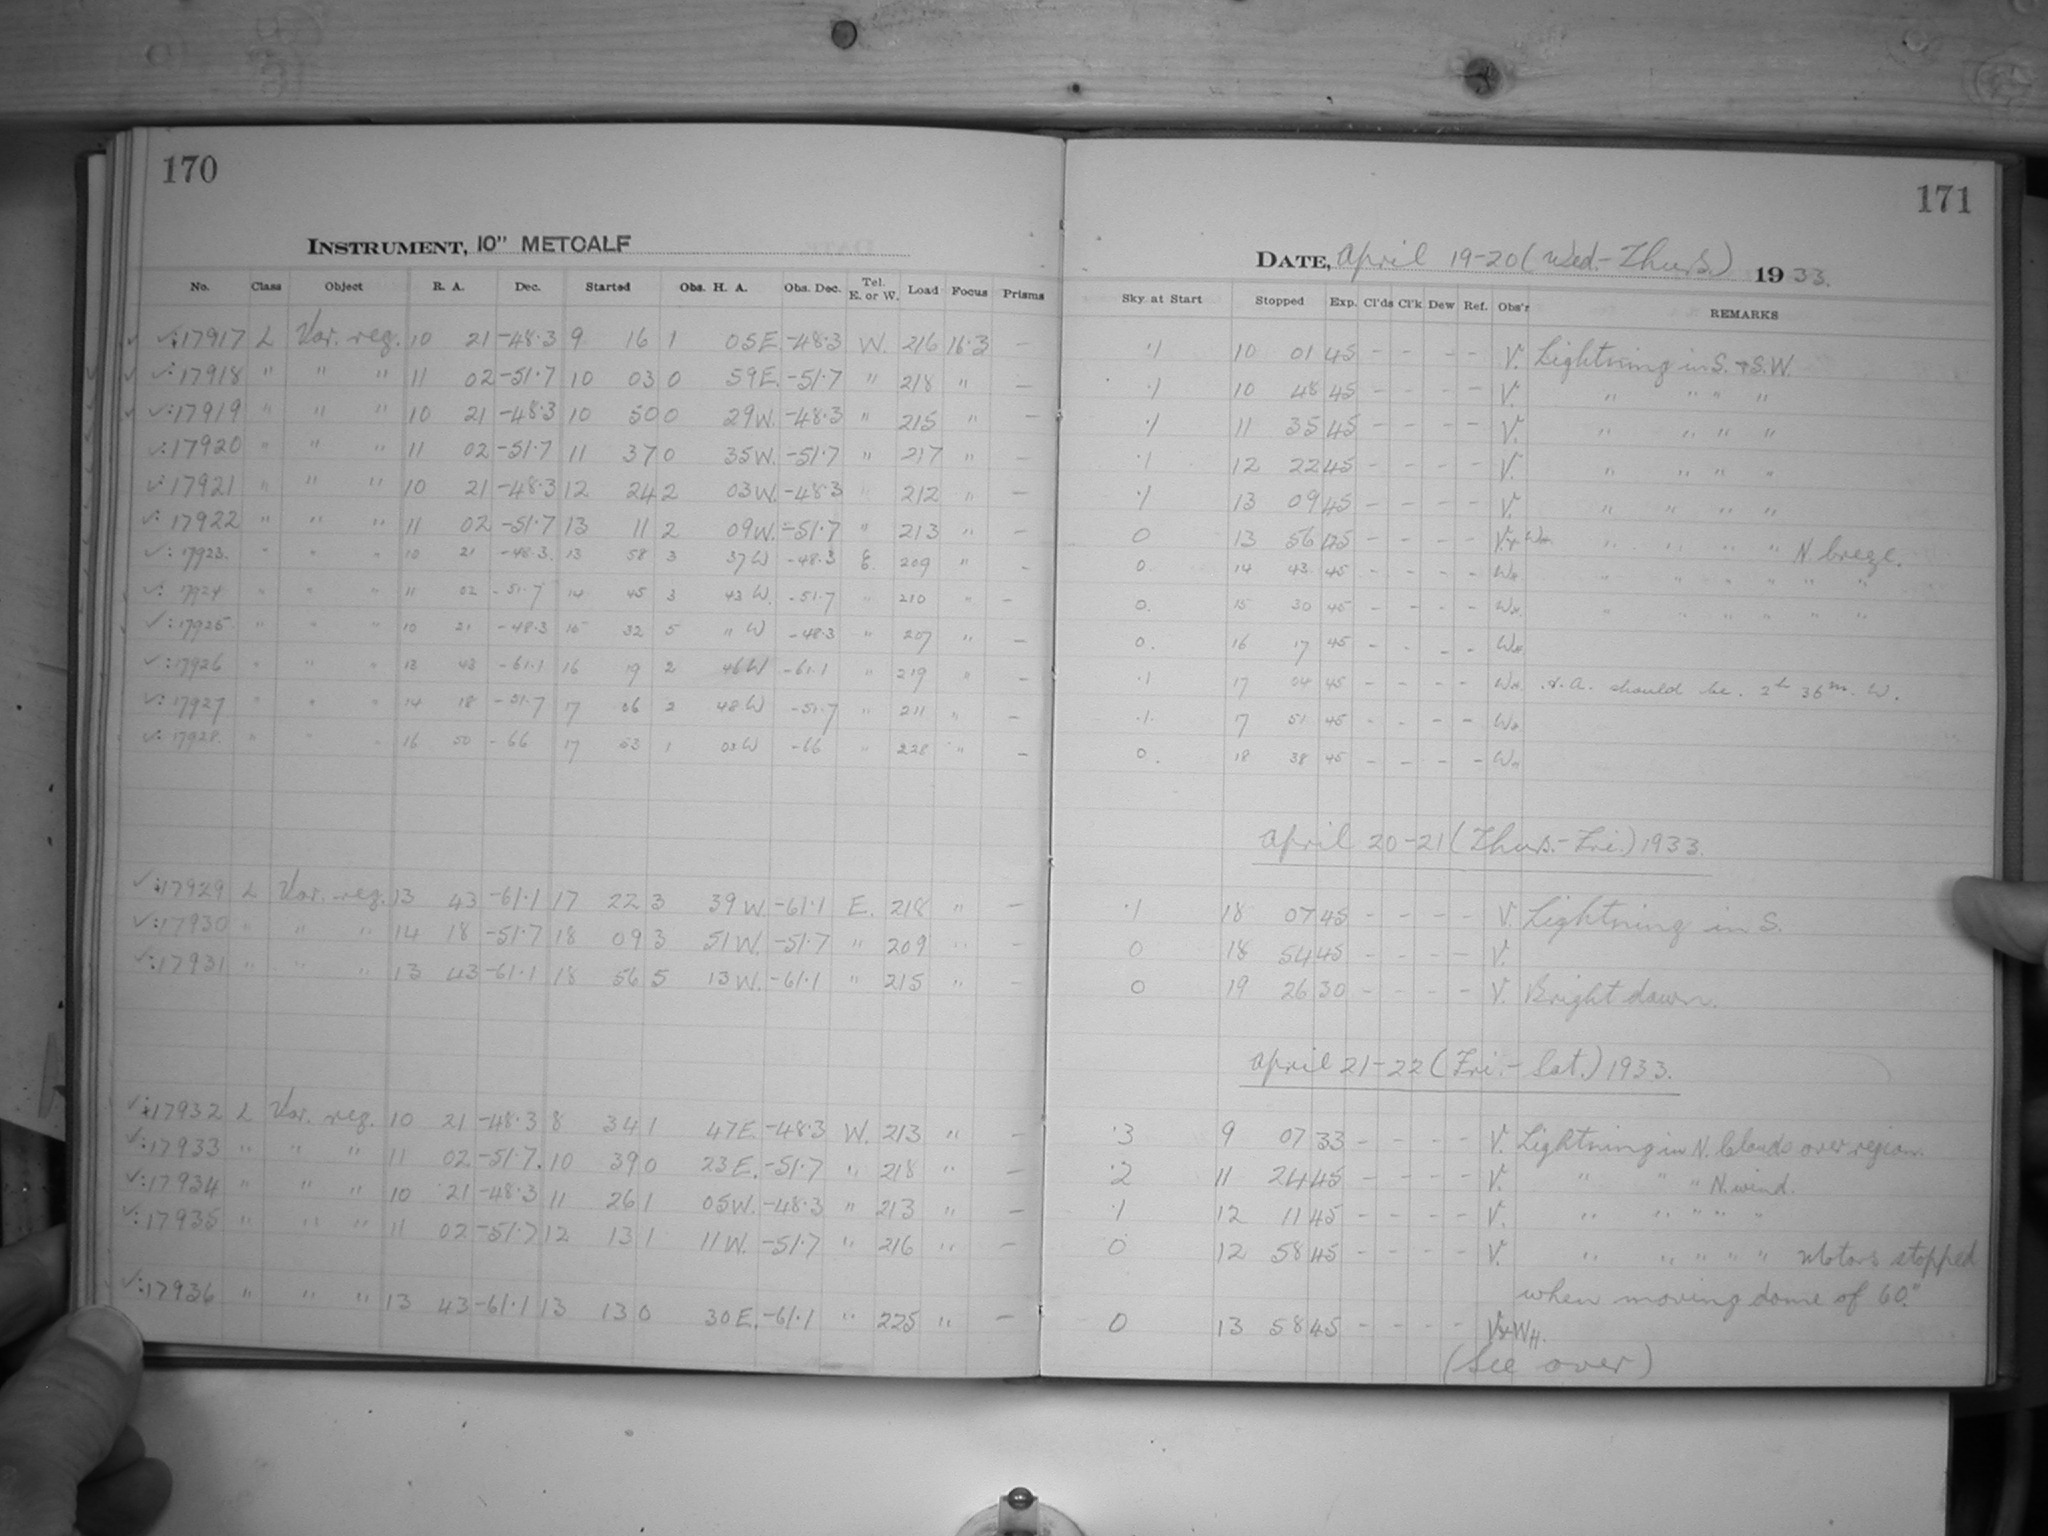 170
INSTRUMENT, 10" METCALF
No. Class Object R. A. Dec. Started Obs. H. A. Obs. Dec. Tel. E. or W. Load Focus Prisms
✓:17917 L Var. reg. 10 21 -48.3 9 16 1 05E. -48.3 W. 216 16.3 -
✓:17918 " " " 11 02 -51.7 10 03 0 59E. -51.7 " 218 " -
✓:17919 " " " 10 21 -48.3 10 50 0 29W. -48.3 " 215 " -
✓:17920 " " " 11 02 -51.7 11 37 0 35W. -51.7 " 217 " -
✓:17921 " " " 10 21 -48.3 12 24 2 03W. -48.3 " 212 " -
✓:17922 " " " 11 02 -51.7 13 11 2 09W. -51.7 " 213 " -
✓:17923. " " " 10 21 -48.3. 13 58 3 37W -48.3 E. 209 " -
✓: 17924 " " " 11 02 -51.7 14 45 3 43W. -51.7 " 210 " -
✓:17925 " " " 10 21 -48.3 15 32 5 11W -48.3 " 207 " -
✓:17926 " " " 13 43 -61.1 16 19 2 46W -61.1 " 219 " -
✓:17927 " " " 14 18 -51.7 17 06 2 48W -51.7 " 211 " -
✓:17928. " " " 16 50 -66 17 53 1 03W -66 " 228 " -
✓:17929 L Var. reg. 13 43 -61.1 17 22 3 39W. -61.1 E. 218 " -
✓:17930 " " " 14 18 -51.7 18 09 3 51W. -51.7 " 209 " -
✓:17931 " " " 13 43 -61.1 18 56 5 13W. -61.1 " 215 " -
✓:17932 L Var. reg. 10 21 -48.3 8 34 1 47E. -48.3 W. 213 " -
✓:17933 " " " 11 02 -51.7. 10 39 0 23E. -51.7 " 218 " -
✓:17934 " " " 10 21 -48.3 11 26 1 05W. -48.3 " 213 " -
✓:17935 " " " 11 02 -51.7 12 13 1 11W. -51.7 " 216 " -
✓:17936 " " " 13 43 -61.1 13 13 0 30E. -61.1 " 225 " -
171
DATE, April 19-20 (Wed.-Thurs.) 1933.
Sky at Start Stopped Exp. Cl'ds Cl'k Dew Ref. Obs'r REMARKS
.1 10 01 45 - - - - V. Lightning in S. + S.W.
.1 10 48 45 - - - - V. " " " "
.1 11 35 45 - - - - V. " " " "
.1 12 22 45 - - - - V. " " " "
.1 13 09 45 - - - - V. " " " "
0 13 56 45 - - - - V.+WH " " " " N. breeze.
0. 14 43 45 - - - - WH " " " " " "
0. 15 30 45 - - - - WH. " " " " " "
0. 16 17 45 - - - - WH
.1 17 04 45 - - - - WH. H.A. should be. 2h 36m. W.
.1. 17 51 45 - - - - WH
0. 18 38 45 - - - - WH
April 20-21 (Thurs.-Fri.) 1933.
.1 18 07 45 - - - - V. Lightning in S.
0 18 54 45 - - - - V.
0 19 26 30 - - - - V. Bright dawn.
April 21-22 (Fri.-Sat.) 1933.
.3 9 07 33 - - - - V. Lightning in N. Clouds over region.
.2 11 24 45 - - - - V. " " " N. wind.
.1 12 11 45 - - - - V. " " " " "
0 12 58 45 - - - - V. " " " " " Motors stopped
when moving dome of 60."
0 13 58 45 - - - - V+WH.
(See over)